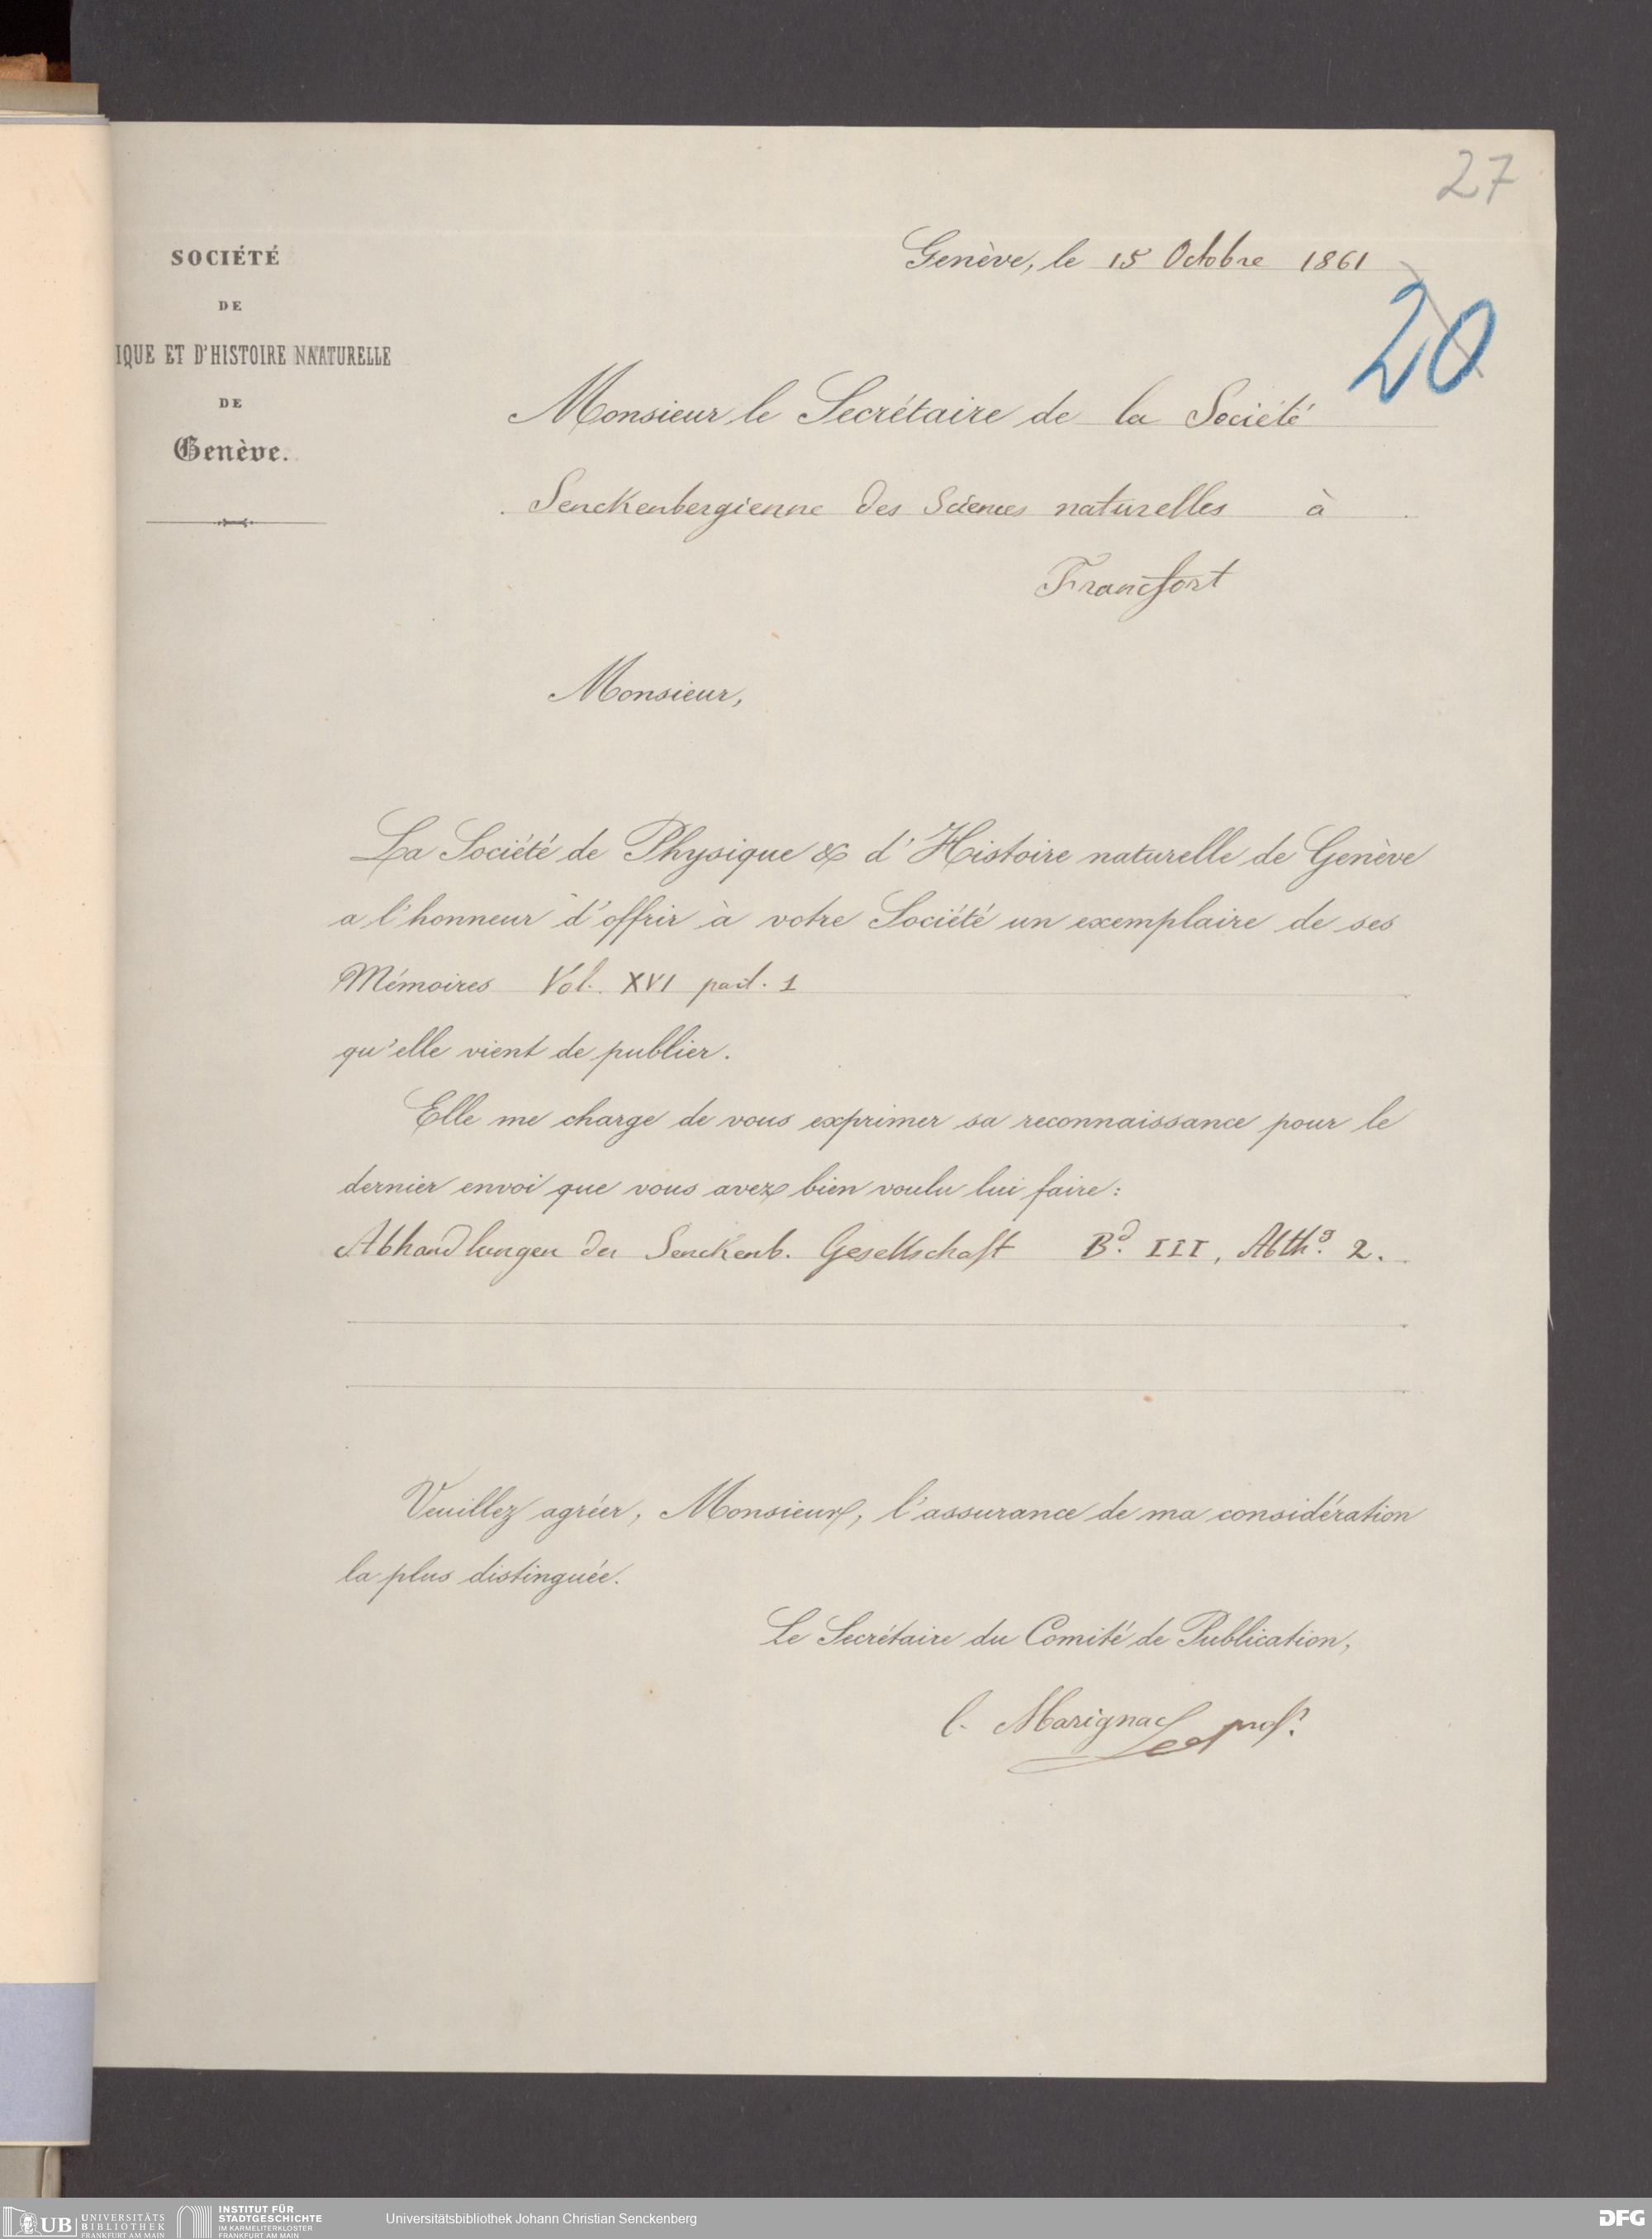 27
SOCIÉTÉ
DE
IQUE ET D'HISTOIRE NATURELLE
DE
Genève.
Genève, le 15 Octobre 1861
20
Monsieur le Secrétaire de la Société
Senckenbergienne des Sciences naturelles à
Francfort
Monsieur,
La Société de Physique & d'Histoire naturelle de Genève
a l'honneur d'offrir à votre Société un exemplaire de ses
Mémoires Vol. XVI part. 1
qu'elle vient de publier.
Elle me charge de vous exprimer sa reconnaissance pour le
dernier envoi que vous avez bien voulu lui faire:
Abhandlungen der Senckenb. Gesellschaft Bd. III, Abthg. 2.
Veuillez agréer, Monsieur, l'assurance de ma considération
la plus distinguée.
Le Secrétaire du Comité de Publication,
C. Marignac prof.
UB UNIVERSITÄTS
BIBLIOTHEK
FRANKFURT AM MAIN
INSTITUT FÜR
STADTGESCHICHTE
IM KARMELITERKLOSTER
FRANKFURT AM MAIN
Universitätsbibliothek Johann Christian Senckenberg
DFG